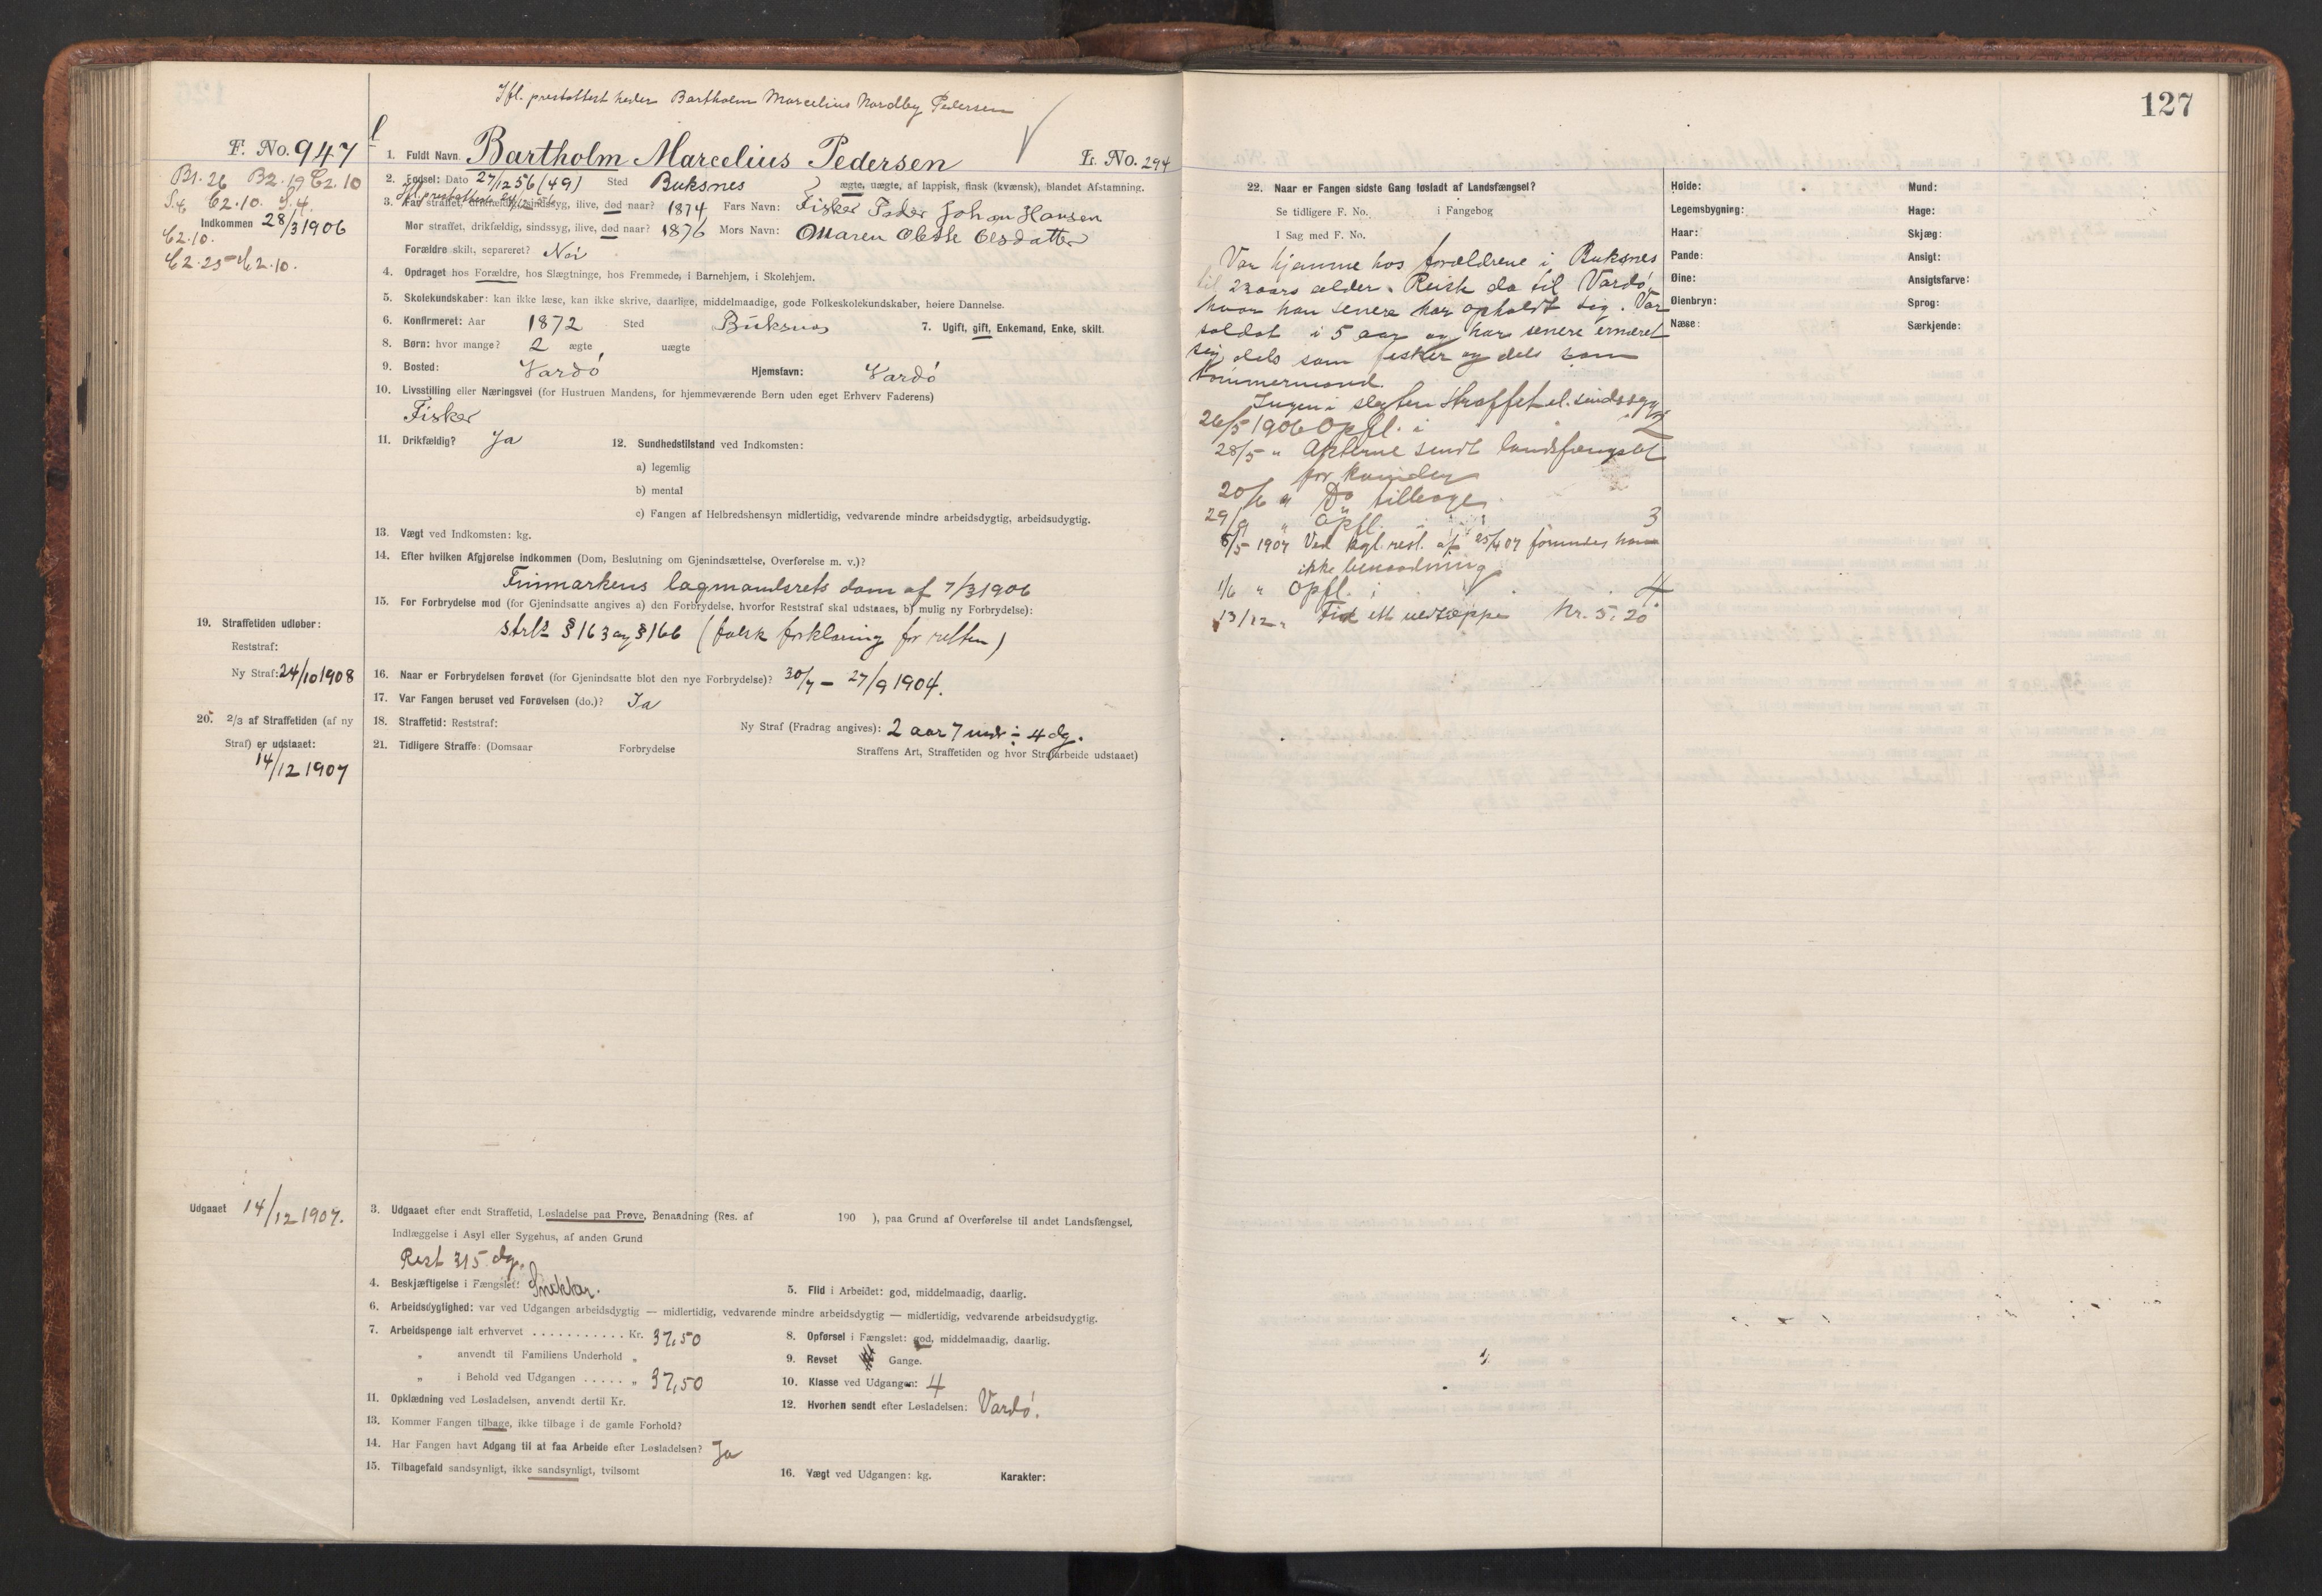 Ifl. prestattest heder Bartholm Marcelius Nordby Pedersen
F. No. 947
1. Fuldt Navn Bartholm Marcelius Pedersen Fr. No. 294
B1. 26 B2. 19 C2. 10
S.4 C2. 10. S. 4.
Indkommen 28/3 1906
C2. 10.
C2. 25 C2. 10.
2. Fødsel: Dato 27/12 56 (49) Sted Buksnes ægte, uægte, af lappisk, finsk (kvænsk), blandet Afstamning.
Ifl. prestattest
3. Far straffet, drikfældig, sindssyg, ilive, død naar? 1874 Fars Navn: Fisker Peder Johan Hansen
Mor straffet, drikfældig, sindssyg, ilive, død naar? 1876 Mors Navn: Maren Olesdatter
Forældre skilt, separeret? Nei
4. Opdraget hos Forældre, hos Slægtninge, hos Fremmede, i Barnehjem, i Skolehjem.
5. Skolekundskaber: kan ikke læse, kan ikke skrive, daarlige, middelmaadige, gode Folkeskolekundskaber, høiere Dannelse.
6. Konfirmeret: Aar 1872 Sted Buksnes 7. Ugift, gift, Enkemand, Enke, skilt.
8. Børn: hvor mange? 2 ægte uægte
9. Bosted: Vardö Hjemstavn: Vardö
10. Livsstilling eller Næringsvei (for Hustruen Mandens, for hjemmeværende Børn uden eget Erhverv Faderens)
Fisker
11. Drikfældig? Ja 12. Sundhedstilstand ved Indkomsten:
a) legemlig
b) mental
c) Fangen af Helbredshensyn midlertidig, vedvarende mindre arbeidsdygtig, arbeidsudygtig.
13. Vægt ved Indkomsten: kg.
14. Efter hvilken Afgjørelse indkommen (Dom, Beslutning om Gjenindsættelse, Overførelse m. v.)?
Finmarkens lagmandsrets dom af 7/3 1906
15. For Forbrydelse mod (for Gjenindsatte angives a) den Forbrydelse, hvorfor Reststraf skal udstaaes, b) mulig ny Forbrydelse):
strl. § 163 og § 166 (falsk forklaring for retten)
19. Straffetiden udløber:
Reststraf:
Ny Straf: 24/10 1908
16. Naar er Forbrydelsen forøvet (for Gjenindsatte blot den nye Forbrydelse)? 30/7 – 27/9 1904.
17. Var Fangen beruset ved Forøvelsen (do.)? Ja
20. 2/3 af Straffetiden (af ny
Straf) er udstaaet:
14/12 1907
18. Straffetid: Reststraf: Ny Straf (Fradrag angives): 2 aar 7 mdr ÷ 4 dg.
21. Tidligere Straffe: (Domsaar Forbrydelse Straffens Art, Straffetiden og hvor Strafarbeide udstaaet)
Udgaaet 14/12 1907.
3. Udgaaet efter endt Straffetid, Løsladelse paa Prøve, Benaadning (Res. af 190 ), paa Grund af Overførelse til andet Landsfængsel,
Indlæggelse i Asyl eller Sygehus, af anden Grund
Rest 315 dg.
4. Beskjæftigelse i Fængslet: Snekker. 5. Flid i Arbeidet: god, middelmaadig, daarlig.
6. Arbeidsdygtighed: var ved Udgangen arbeidsdygtig — midlertidig, vedvarende mindre arbeidsdygtig — midlertidig, vedvarende arbeidsudygtig.
7. Arbeidspenge ialt erhvervet . . . . . . . . . . . Kr. 37,50 8. Opførsel i Fængslet: god, middelmaadig, daarlig.
„ anvendt til Familiens Underhold „ 9. Revset Gange.
„ i Behold ved Udgangen . . . . . „ 37,50 10. Klasse ved Udgangen: 4
11. Opklædning ved Løsladelsen, anvendt dertil Kr. 12. Hvorhen sendt efter Løsladelsen: Vardö.
13. Kommer Fangen tilbage, ikke tilbage i de gamle Forhold?
14. Har Fangen havt Adgang til at faa Arbeide efter Løsladelsen? Ja
15. Tilbagefald sandsynligt, ikke sandsynligt, tvilsomt 16. Vægt ved Udgangen: kg. Karakter:
127
22. Naar er Fangen sidste Gang løsladt af Landsfængsel?
Se tidligere F. No. i Fangebog
I Sag med F. No.
Var hjemme hos forældrene i Buksnes
til 23 aars alder. Reiste da til Vardö,
hvor han senere har opholdt sig. Var
soldat i 5 aar og har senere ernæret
sig dels som fisker og dels som
tømmermand.
Ingen i slegten straffet el. sindssyg
26/5 1906 Opfl. i 2
28/5 „ Akterne sendt landsfængslet
for kvinder
20/6 „ Do tilbage.
29/9 „ Opfl. i 3
8/5 1907 Ved kgl. resl. af 25/4 07 forundes ham
ikke benaadning
1/6 „ Opfl. i 4
13/12 „ Kr. 5.20
Høide: Mund:
Legemsbygning: Hage:
Haar: Skjæg:
Pande: Ansigt:
Øine: Ansigtsfarve:
Øienbryn: Sprog:
Næse: Særkjende: